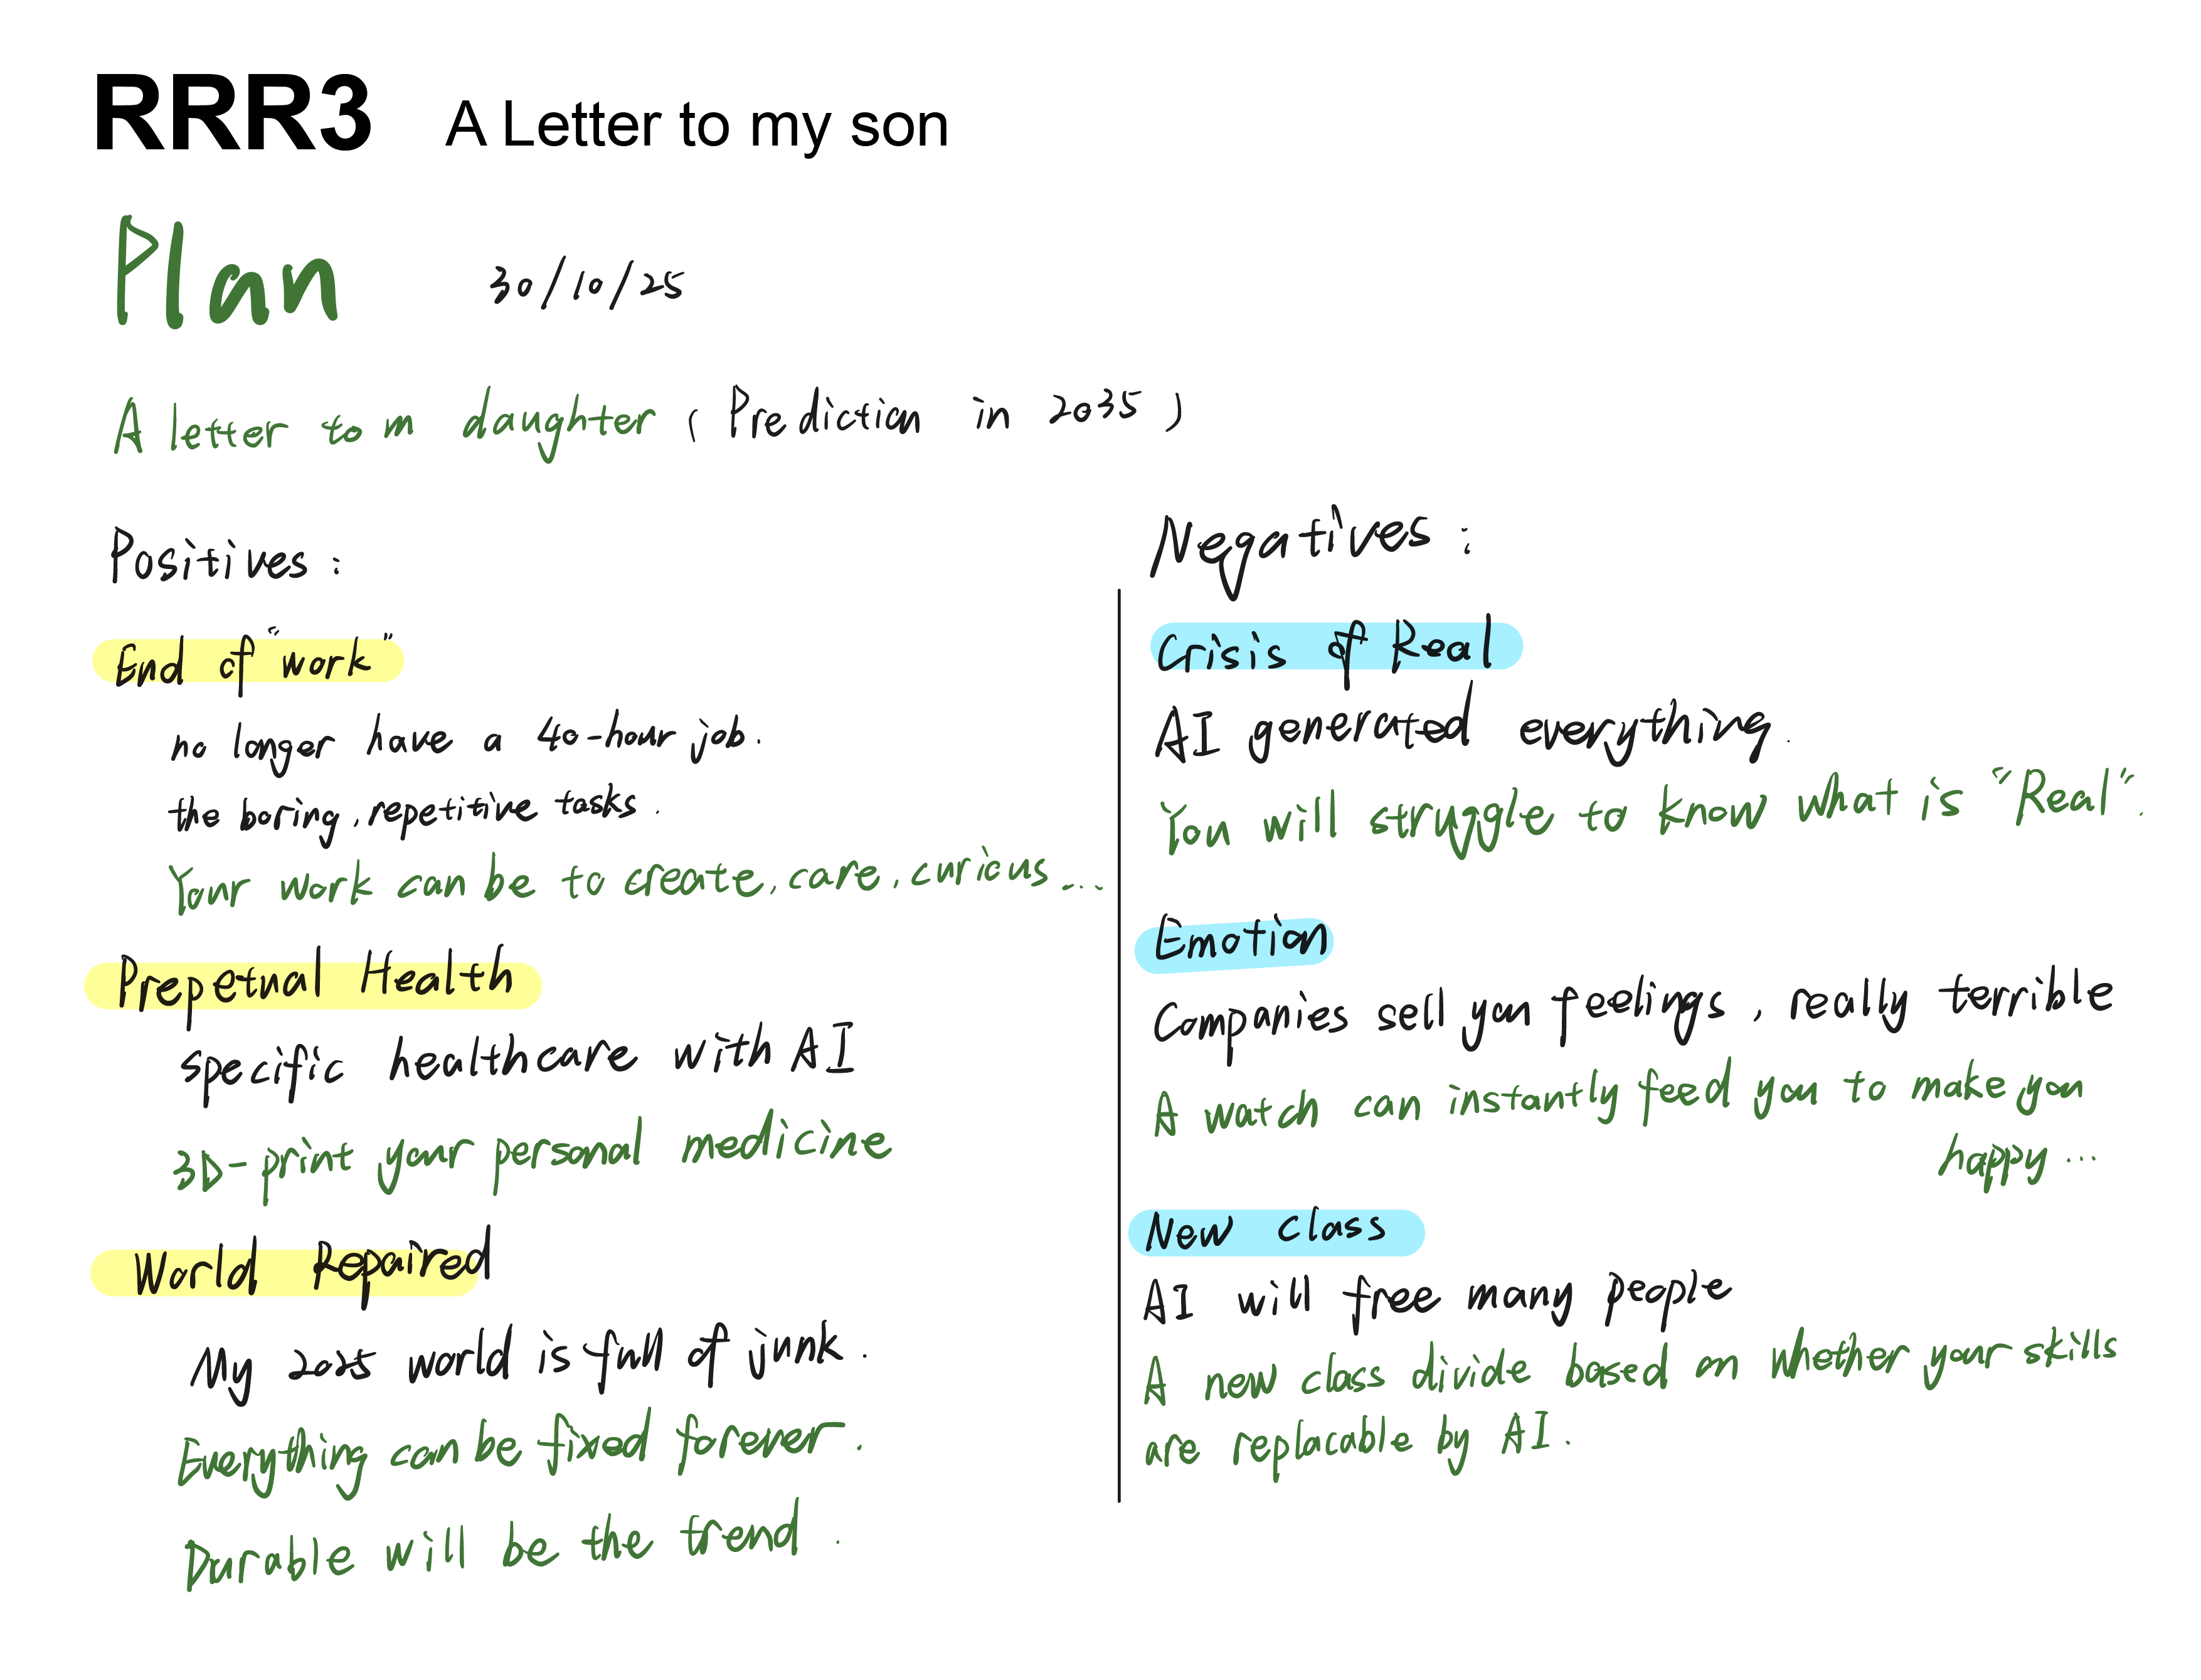 RRR3 A Letter to my son
Plan 30/10/25
A letter to m daughter (Prediction in 2035)
Positives:
End of "work"
no longer have a 40-hour job.
the boring, repetitive tasks.
Your work can be to create, care, curious...
Prepetual Health
specific healthcare with AI
3D-print your personal medicine
World Repaired
My 2025 world is full of junk.
Everything can be fixed forever.
Durable will be the trend.
Negatives:
Crisis of Real
AI generated everything.
You will struggle to know what is "Real".
Emotion
Companies sell you feelings, really terrible
A watch can instantly feed you to make you
happy...
New class
AI will free many people
A new class divide based on whether your skills
are replacable by AI.